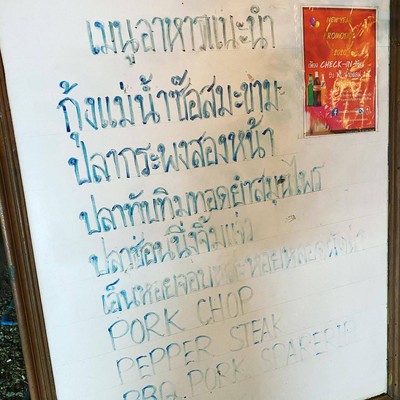 เมนูอาหารแนะนำ
กุ้งแม่น้ำซ๊อสมะขาม
ปลากระพงสองหน้า
ปลาทับทิมทอดยำสมุนไพร
ปลาช่อนนึ่งจิ้มแจ่ว
เอ็นหอยจอบ
PORK CHOP
PEPPER STEAK
BBQ PORK SPARERIB
NEW YEAR
PROMOTION
CHECK-IN